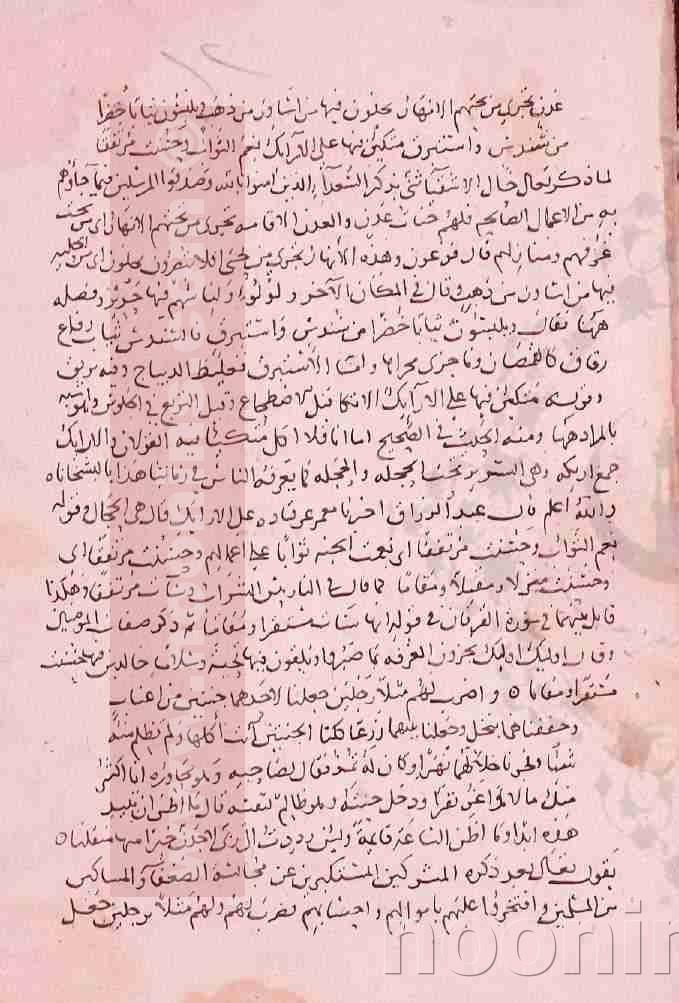 عدن تجري من تحتهم الانهار يحلون فيها من اساور من ذهب ويلبسون ثيابا خضرا
من سندس واستبرق متكين فيها على الارايك نعم الثواب وحسنت مرتفقا
لما ذكر تعالى حال الاشقيا ثنى بذكر السعدآء الذين امنوا بالله وصدقوا المرسلين فيما جاوهم
به من الاعمال الصالحه فلهم جنات عدن والعدن الاقامه تجري من تحتهم الانهار اى من تحت
غرفهم ومنازلهم قال فرعون وهذه الأنهار تجري من تحتي افلا تبصرون يحلون اى من الحليه
فيها من اساور من ذهب وقال في المكان الآخر ولولوا ولباسهم فيها حرير وفصله
ههنا فقال ويلبسون ثيابا خضرا من سندس واستبرق فالسندس ثياب رفاع
رقاق كالقمصان وما جرى مجراها واما الاستبرق فغليظ الديباج وفيه بريق
وقوله متكين فيها على الارايك الاتكا قيل الاضطجاع وقيل التربع في الجلوس وهو اشبه
بالمراد ههنا ومنه الحديث في الصحيح اما انا فلا اكل متكيا فيه القولان والارايك
جمع اريكه وهى السرير تحت الحجله والحجله كما يعرفه الناس في زماننا هذا بالبشخاناه
والله اعلم قال عبد الرزاق اخبرنا معمر عن قتاده على الارايك قال هي الحجال وقوله
نعم الثواب وحسنت مرتفقا اى نعمت الجنه ثوابا على اعمالهم وحسنت مرتفقا اى
وحسنت منزلا ومقيلا ومقاما كما قال في النار بيس الشراب وساءت مرتفقا وهكذا
قابل بينهما في سورة الفرقان في قوله انها ساءت مستقرا ومقاما ثم ذكر صفات المومنين
وقال اوليك يجزون الغرفه بما صبروا ويلقون فيها تحية وسلاما خالدين فيها حسنت
مستقرا ومقاما ه واضرب لهم مثلا رجلين جعلنا لاحدهما جنتين من اعناب
وحففناهما بنخل وجعلنا بينهما زرعا كلتا الجنتين آتت أكلها ولم تظلم منه
شيئا وفجرنا خلالهما نهرا وكان له ثمر فقال لصاحبه وهو يحاوره انا اكثر
منك مالا واعز نفرا ودخل جنته وهو ظالم لنفسه قال ما اظن ان تبيد
هذه ابدا وما اظن الساعة قايمة ولين رددت الى ربي لاجدن خيرا منها منقلبا ه
يقول تعالى بعد ذكره المشركين المستكبرين عن مجالسة الضعفآء والمساكين
من المسلمين وافتخروا عليهم باموالهم واحسابهم فضرب لهم ولهم مثلا برجلين جعل
noonin